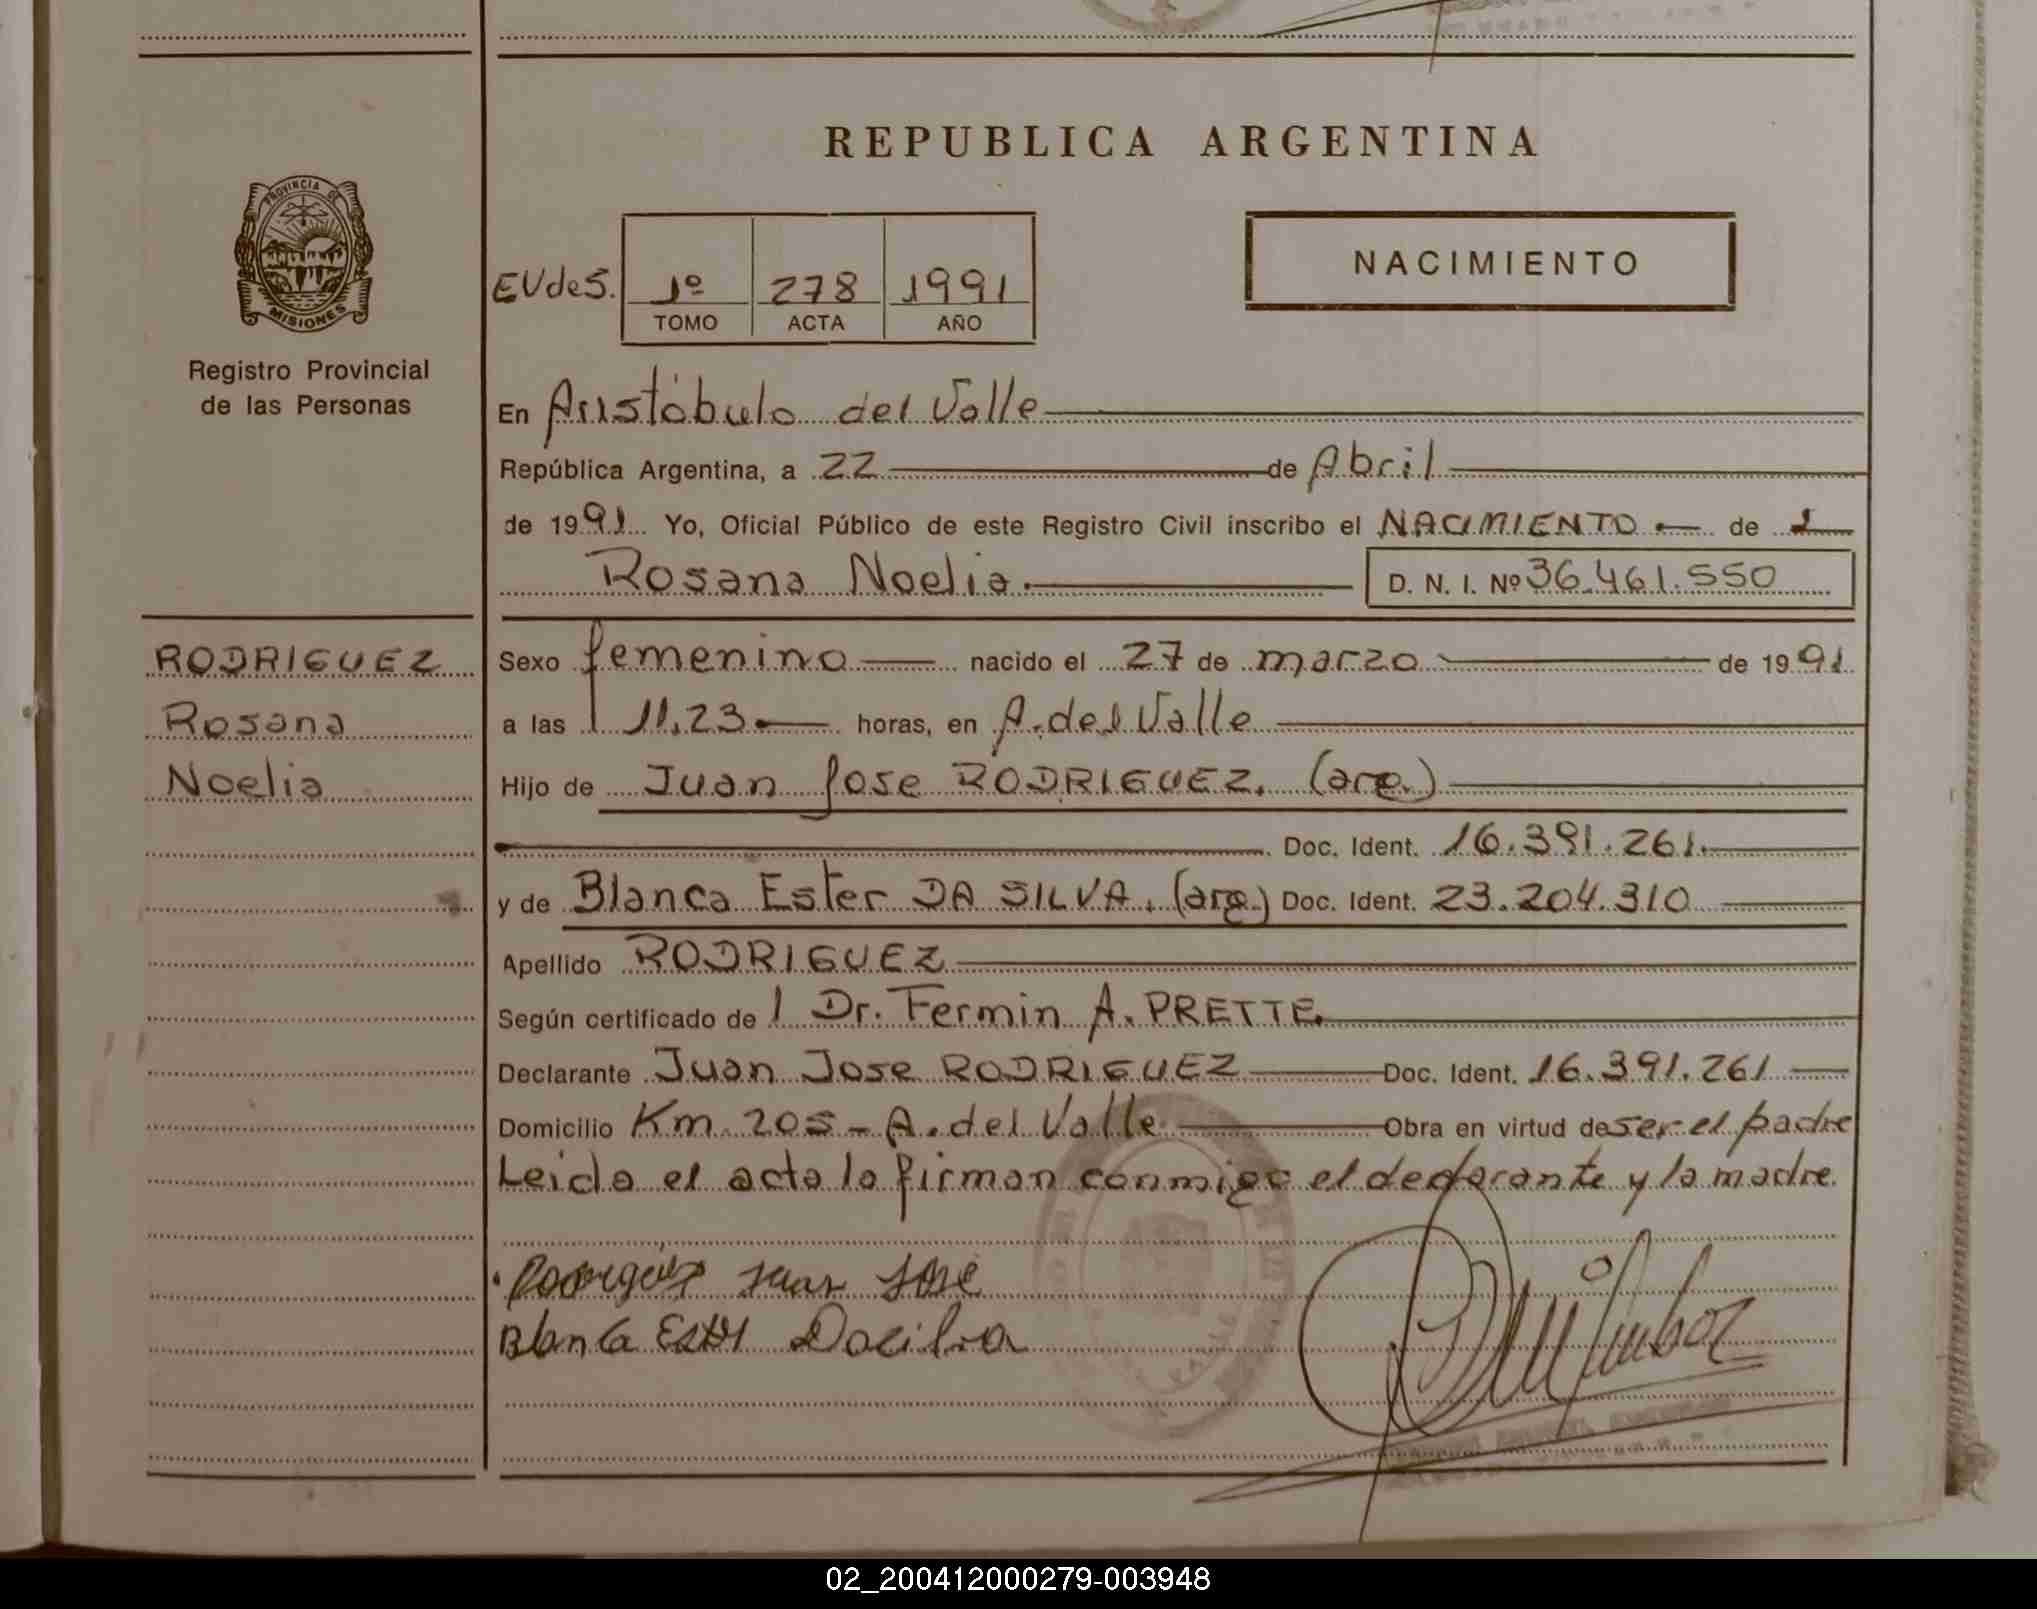 REPUBLICA ARGENTINA
PROVINCIA DE
MISIONES
Registro Provincial
de las Personas
NACIMIENTO
EVdeS. 1º 278 1991
TOMO ACTA AÑO
En Aristóbulo del Valle
República Argentina, a 22 de Abril
de 1991 Yo, Oficial Público de este Registro Civil inscribo el NACIMIENTO de
Rosana Noelia. D. N. I. Nº 36.461.550
RODRIGUEZ
Rosana
Noelia
Sexo femenino nacido el 27 de marzo de 1991
a las 11.23 horas, en A. del Valle
Hijo de Juan Jose RODRIGUEZ. (arg.)
Doc. Ident. 16.391.261.
y de Blanca Ester DA SILVA. (arg.) Doc. Ident. 23.204.310
Apellido RODRIGUEZ
Según certificado de l Dr. Fermin A. PRETTE.
Declarante Juan Jose RODRIGUEZ Doc. Ident. 16.391.261
Domicilio Km 205 - A. del Valle Obra en virtud de ser el padre
Leida el acta la firman conmigo el declarante y la madre.
Rodriguez Juan José
Blanca Ester Dacilva
02_200412000279-003948